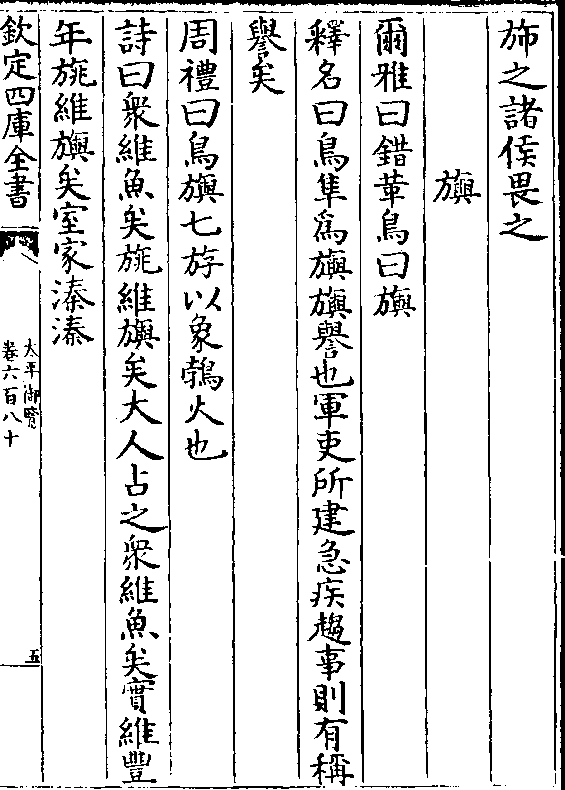 斾之諸侯畏之
旟
爾雅曰錯革鳥曰旟
釋名曰鳥隼為旟旟譽也軍吏所建急疾趨事則有稱
譽矣
周禮曰鳥旟七斿以象鶉火也
詩曰衆維魚矣旐維旟矣大人占之衆維魚矣實維豐
年旐維旟矣室家溱溱
欽定四庫全書
太平御覽
卷六百八十
五